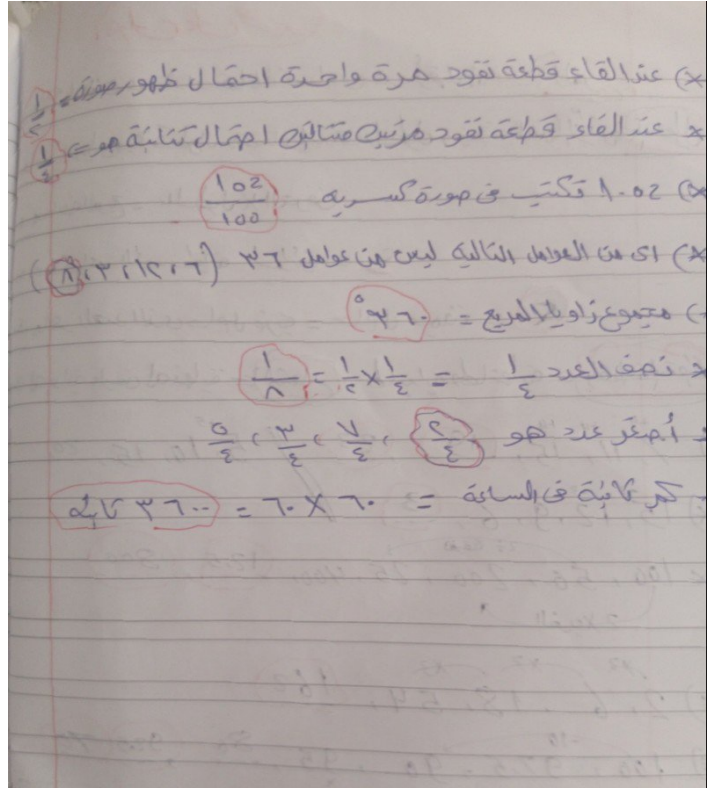 *) عند القاء قطعة نقود مرة واحدة احتمال ظهور صورة = ١/٢
* عند القاء قطعة نقود مرتين متتاليتين احتمال كتابة هو = ١/٤
*) 1.52 تكتب فى صورة كسرية 152/100
*) اى من العوامل التالية ليس من عوامل ٣٦ (٦، ١٢، ٣، ٨)
-) مجموع زوايا المربع = ٣٦٠°
* نصف العدد ١/٤ = ١/٤ × ١/٢ = ١/٨
- أصغر عدد هو ٢/٤ ، ٧/٤ ، ٣/٤ ، ٥/٤
- كم ثانية فى الساعة = ٦٠ × ٦٠ = ٣٦٠٠ ثانية